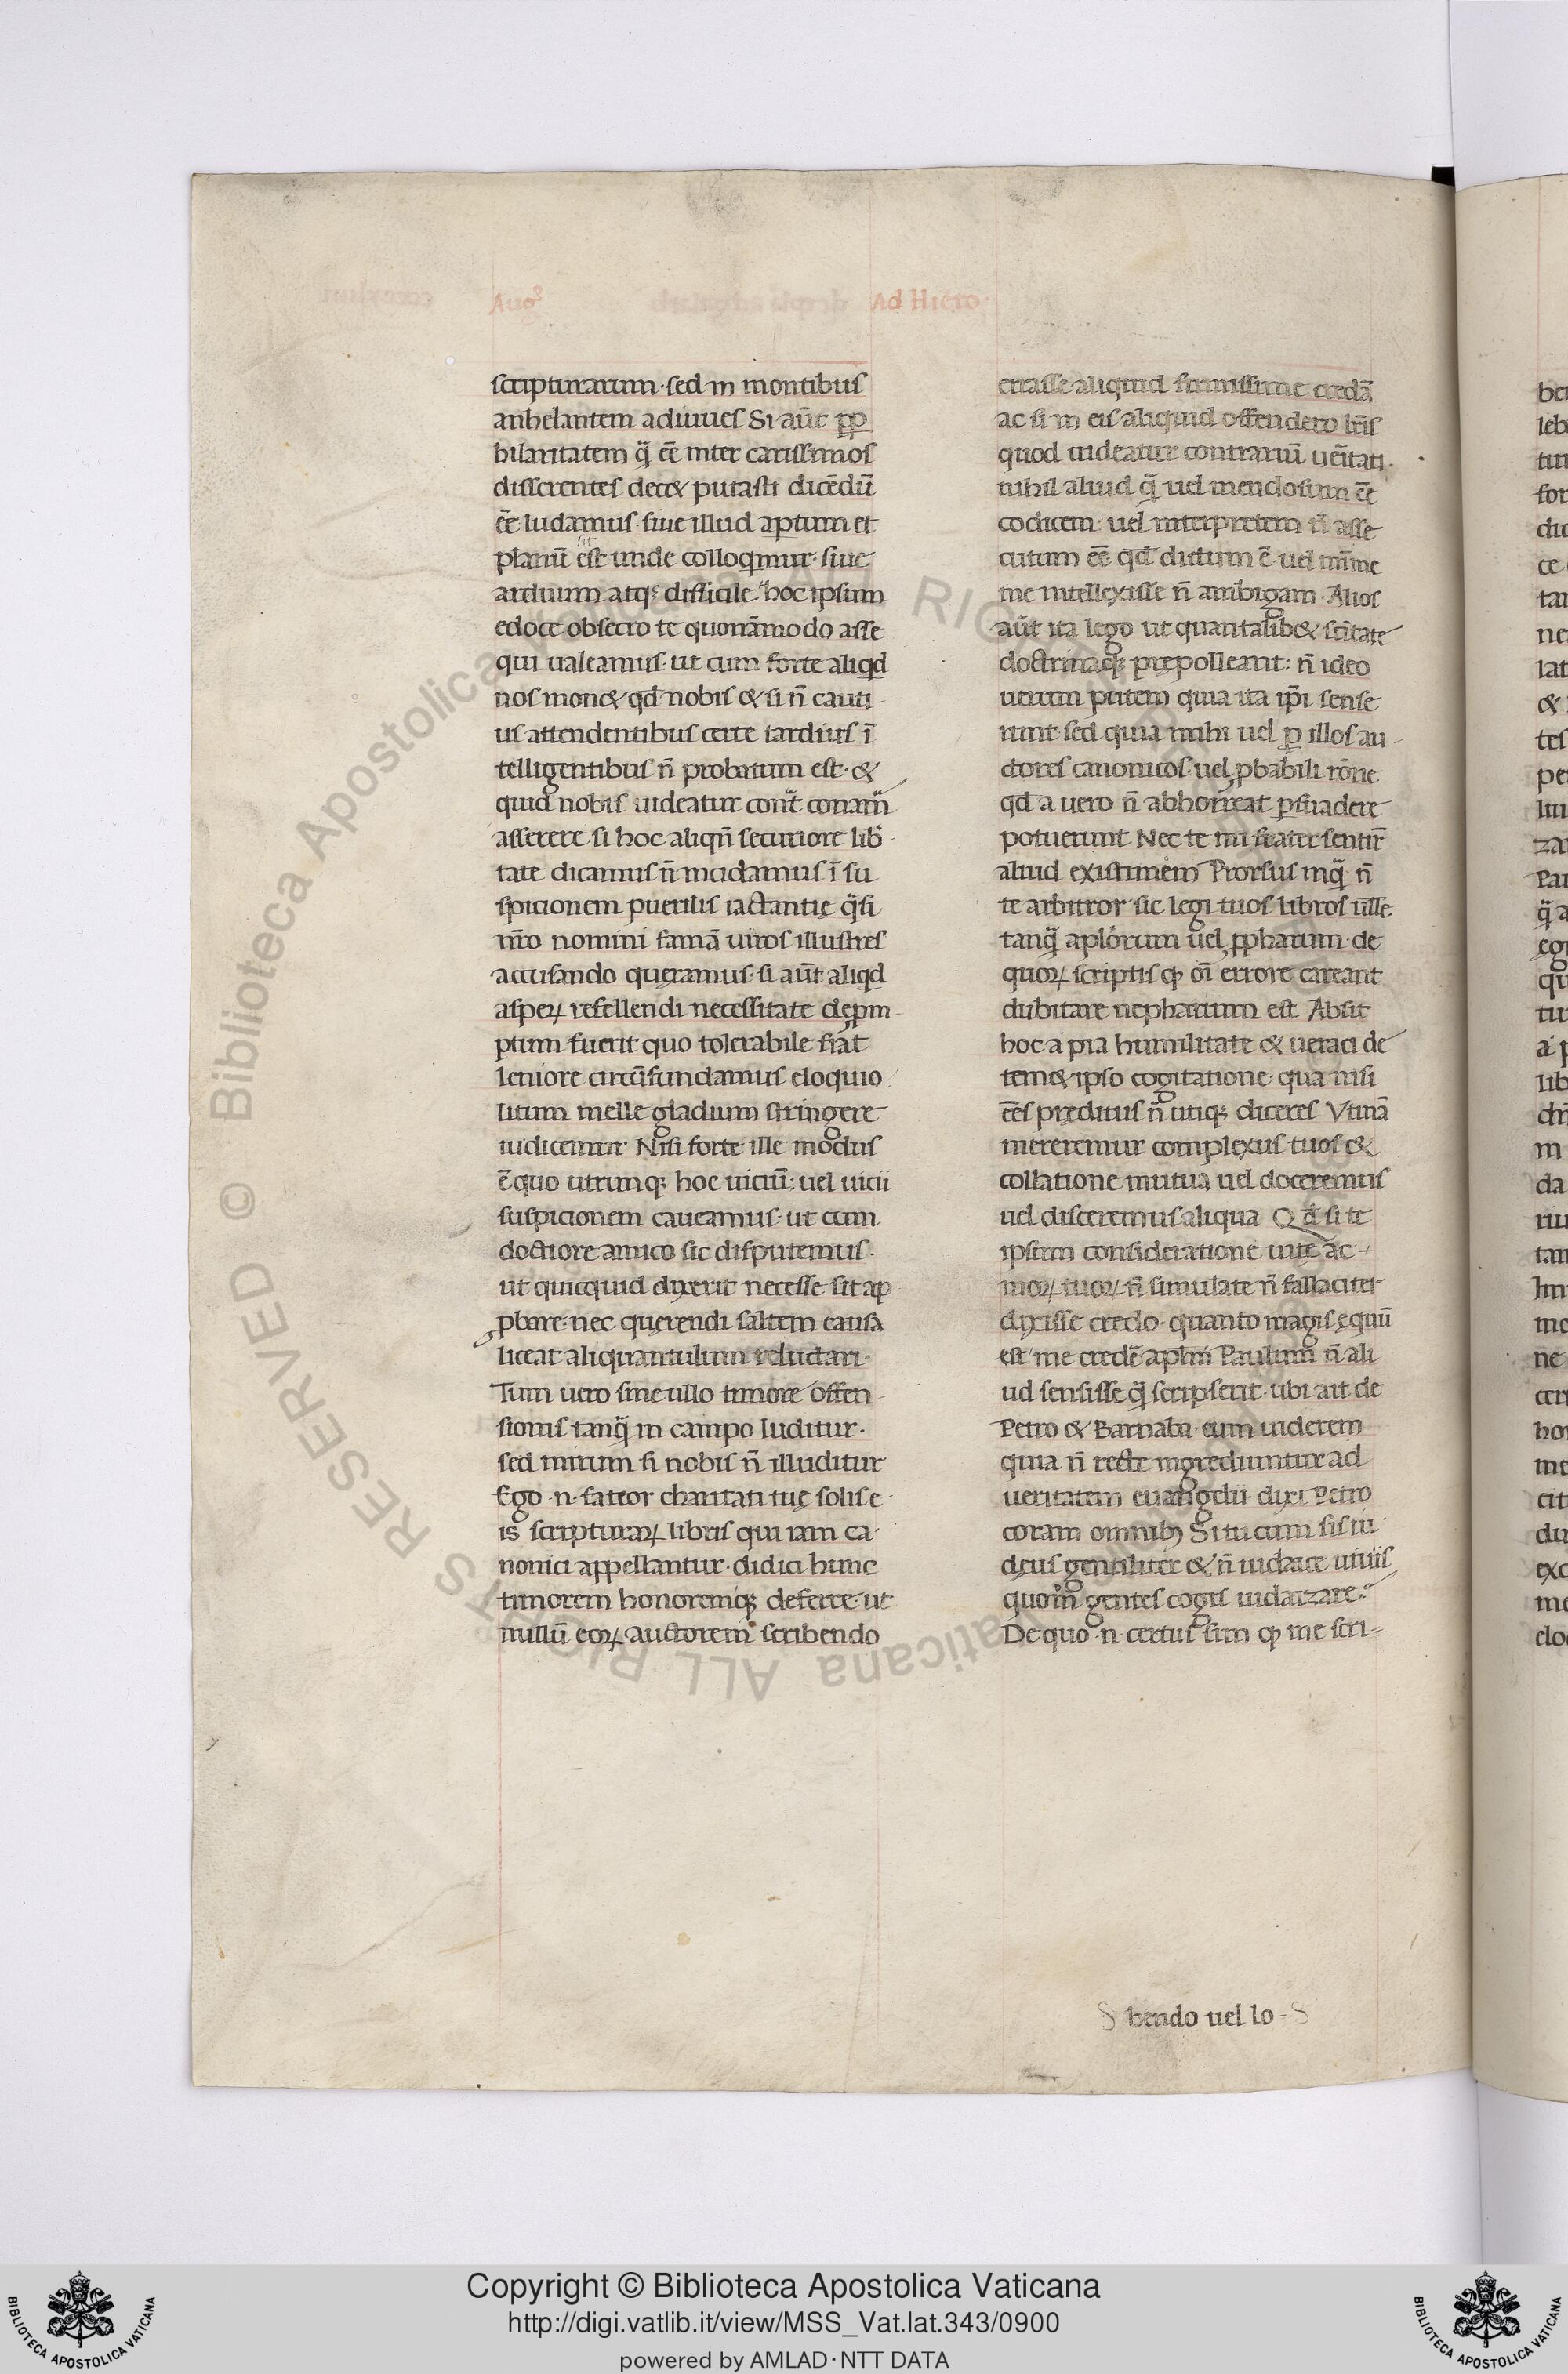 Augꝰ
Ad Hiero.
scripturarum· sed in montibus
anhelantem adiuues Si aūt ꝓp
hilaritatem q̄ ēē inter carissimos
disserentes dec& putasti dicēdū
ēē ludamus· siue illud apertum et
planū est unde colloq̄mur· siue
arduum atqȝ difficile· hoc ipsum
edoce obsecro te quonāmodo asse
qui ualeamus· ut cum forte aliqd
nos mon& qd nobis & si n̄ cauti-
us attendentibus certe tardius ī
telligentibus n̄ probatum est· &
quid nobis uideatur cont̄ conam̄
asserere· si hoc aliqn̄ securiore lib̄
tate dicamus n̄ incidamus ī su
spicionem puerilis iactantię q̄si
nr̄o nomini famā uiros illustres
accusando queramus· si aūt aliqd
asperꝝ refellendi necessitate deꝓm-
ptum fuerit quo tolerabile fiat
leniore circūfundamus eloquio
litum melle gladium stringere
iudicemur Nisi forte ille modus
ē quo utrunqȝ hoc uiciū: uel uicii
suspicionem caueamus· ut cum
doctiore amico sic disputemus·
ut quicquid dixerit necesse sit ap
ꝓbare· nec querendi saltem causa
liceat aliquantulum reluctari·
Tum uero sine ullo timore offen-
sionis tanq̄ in campo luditur·
sed mirum si nobis n̄ illuditur
Ego ·n· fateor charitati tuę solis e
is scripturaꝝ libris qui iam ca-
nonici appellantur· didici hunc
timorem honoremqȝ deferre· ut
nullū eoꝝ auctorem scribendo
errasse aliquid firmissime credā
ac si in eis aliquid offendero lr̄is
quod uideatur contrariū uēitati·
nihil aliud q̄ uel mendosum ēē
codicem· uel interpretem n̄ asse
cutum ēē qd dictum ē· uel mīme
me intellexisse n̄ ambigam· Alios
aūt ita lego ut quantalib& scītate
doctrinaqȝ prępolleant: n̄ ideo
uerum putem quia ita ip̄i sense
runt· sed quia mihi uel ꝑ illos au-
ctores canonicos· uel ꝓbabili rōne
qd a uero n̄ abhorreat ꝑsuadere
potuerunt Nec te mi frater sentir̄
aliud existimem Prorsus inq̄ n̄
te arbitror sic legi tuos libros uīlle
tanq̄ aplōrum uel ꝓpharum· de
quoꝝ scriptis ꝙ oī errore careant
dubitare nepharium est Absit
hoc a pia humilitate & ueraci de
tem& ipso cogitatione· qua nisi
ēēs preditus n̄ utiqȝ diceres Vtinā
mereremur complexus tuos &
collatione mutua uel doceremus
uel disceremus aliqua Qd si te
ipsum consideratione uite ac
moꝝ tuoꝝ n̄ simulate n̄ fallaciter
dixisse credo· quanto magis ęquū
est me credē aplm̄ Paulum n̄ ali
ud sensisse q̄ scripserit· ubi ait de
Petro & Barnaba· cum uiderem
quia n̄ recte ingrediuntur ad
ueritatem euangelii· dixi Petro
coram omnibȝ Si tu cum sis iu
deus gentiliter & n̄ iudaice uiuis
quom̄ gentes cogis iudaizare?
De quo ·n· certus sim ꝙ me scri-
bendo uel lo-
© Biblioteca Apostolica Vaticana ALL RIGHTS RESERVED
Copyright © Biblioteca Apostolica Vaticana
http://digi.vatlib.it/view/MSS_Vat.lat.343/0900
powered by AMLAD·NTT DATA
BIBLIOTECA APOSTOLICA VATICANA
BIBLIOTECA APOSTOLICA VATICANA